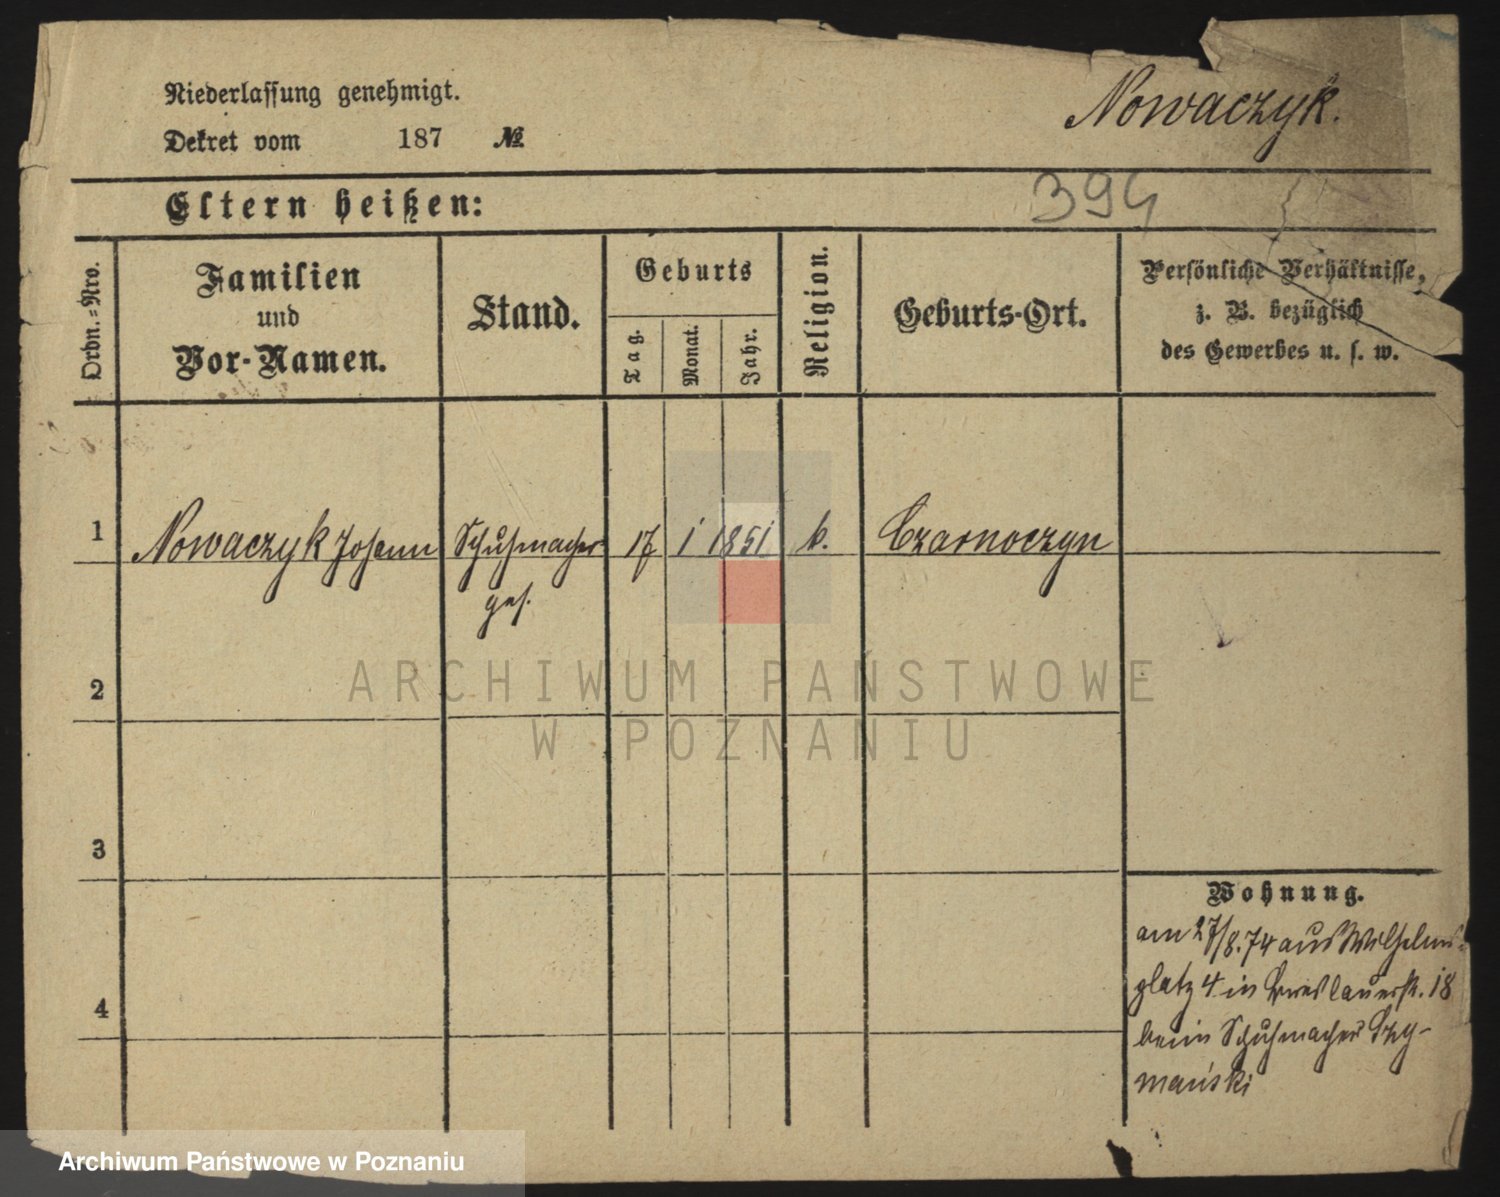 Niederlassung genehmigt.
Dekret vom 187 №
Nowaczyk.
Eltern heißen:
394
Ordn.-Nro.
Familien
und
Vor-Namen.
Stand.
Geburts
Tag.
Monat.
Jahr.
Religion.
Geburts-Ort.
Persönliche Verhältnisse,
z. B. bezüglich
des Gewerbes u. s. w.
1 Nowaczyk Johann Schuhmacher 17 1 1851 k. Czarnoczyn
ges.
2
3
4
Wohnung.
am 27/8.74 aus Wilhelms-
platz 4 in Breslauerst. 18
beim Schuhmacher Szy-
mański
ARCHIWUM PAŃSTWOWE
W POZNANIU
Archiwum Państwowe w Poznaniu